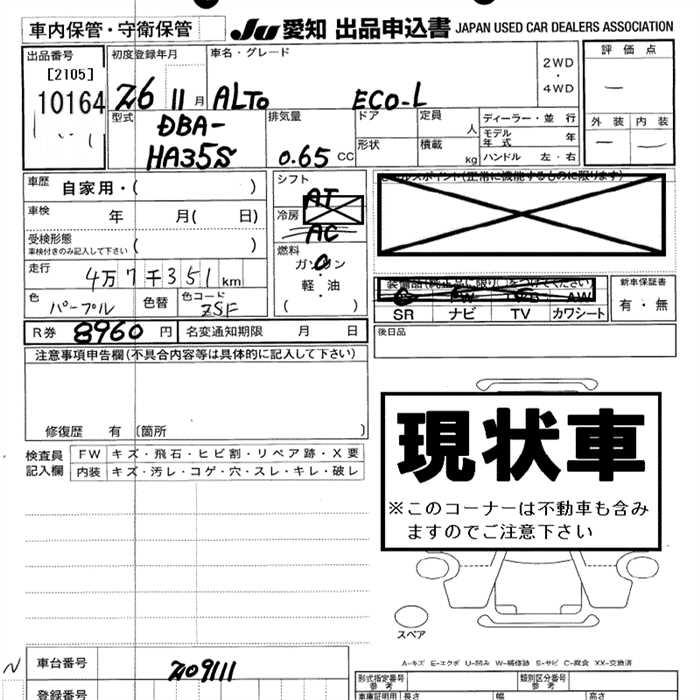 車内保管・守衛保管
JU 愛知 出品申込書 JAPAN USED CAR DEALERS ASSOCIATION
出品番号
[2105]
10164
初度登録年月
26 11 月
車名・グレード
ALTO ECO-L
2WD
・
4WD
評価点
―
外装 内装
― ―
型式
DBA-
HA35S
排気量
0.65 CC
ドア
形状
定員
人
積載
kg
ディーラー・並行
モデル年式 年
ハンドル 左・右
車歴 自家用・( )
車検 年 月( 日)
受検形態
車検付きのみ記入して下さい ( )
走行 4万7千351km
色 パープル 色替 色コード ZSF
シフト
AT
冷房
AC
燃料
ガソリン
・
軽・油
( )
セールスポイント(正常に機能するものに限ります)
SR ナビ TV カワシート
新車保証書
有・無
後日品
R券 8960 円 名変通知期限 月 日
注意事項申告欄(不具合内容等は具体的に記入して下さい)
修復歴 有 (箇所 )
検査員記入欄
FW キズ・飛石・ヒビ割・リペア跡・X要
内装 キズ・汚レ・コゲ・穴・スレ・キレ・破レ
現状車
※このコーナーは不動車も含み
ますのでご注意下さい
スペア
A-キズ E-エクボ U-凹み W-補修跡 S-サビ C-腐食 XX-交換済
N
車台番号 209111
登録番号
形式指定番号
参考
類別区分番号
参考
車庫証明用 長さ 幅 高さ